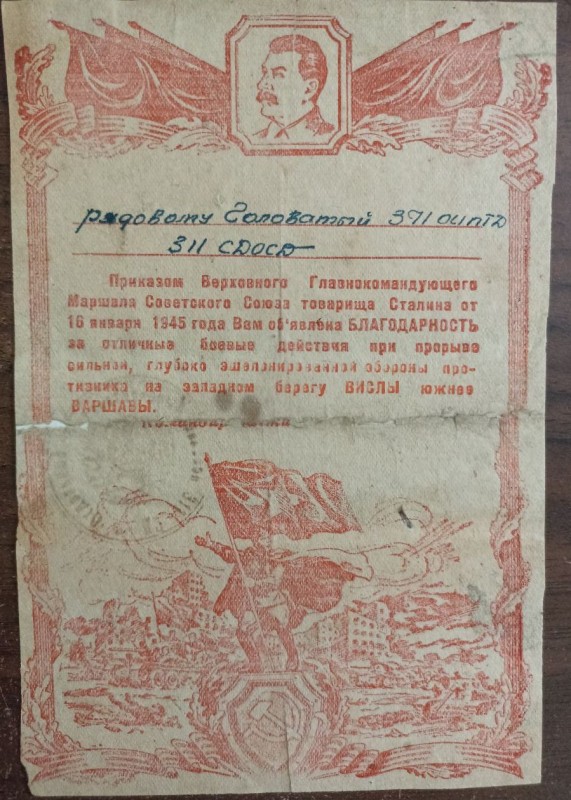 рядовому Головатый 371 ОИПТД
311 СДОСД
Приказом Верховного Главнокомандующего
Маршала Советского Союза товарища Сталина от
16 января 1945 года Вам об'явлена БЛАГОДАРНОСТЬ
за отличные боевые действия при прорыве
сильной, глубоко эшелонированной обороны про-
тивника на западном берегу ВИСЛЫ южнее
ВАРШАВЫ.
Командир